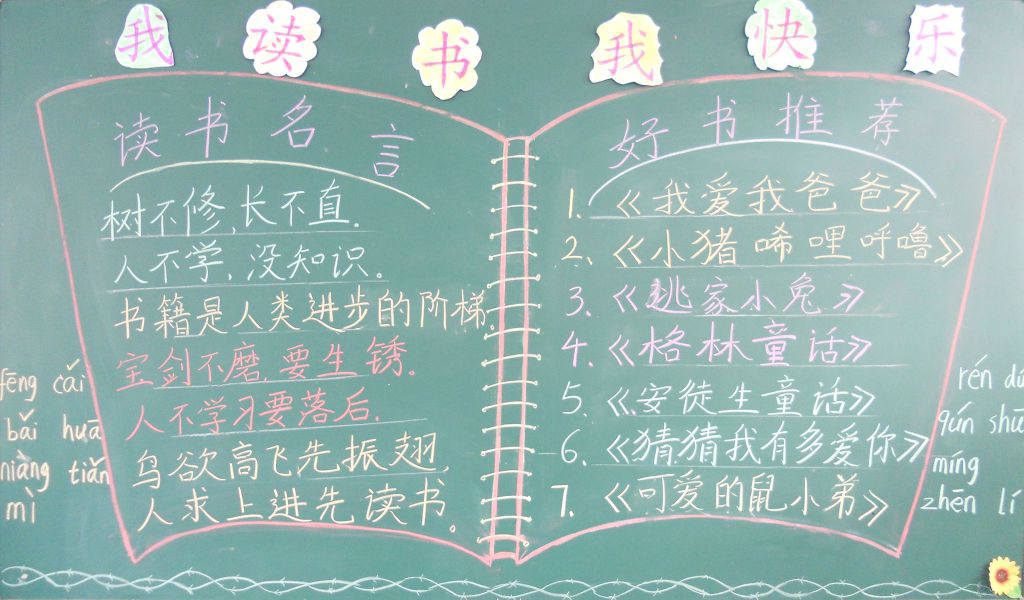 我读书我快乐
读书名言
树不修,长不直.
人不学,没知识。
书籍是人类进步的阶梯。
宝剑不磨,要生锈。
人不学习要落后.
鸟欲高飞先振翅,
人求上进先读书。
好书推荐
1.《我爱我爸爸》
2.《小猪唏哩呼噜》
3.《逃家小兔》
4.《格林童话》
5.《安徒生童话》
6.《猜猜我有多爱你》
7.《可爱的鼠小弟》
fēng cǎi
bǎi huā
niàng tiǎn
mì
rén dú
qún shū
míng
zhēn lí